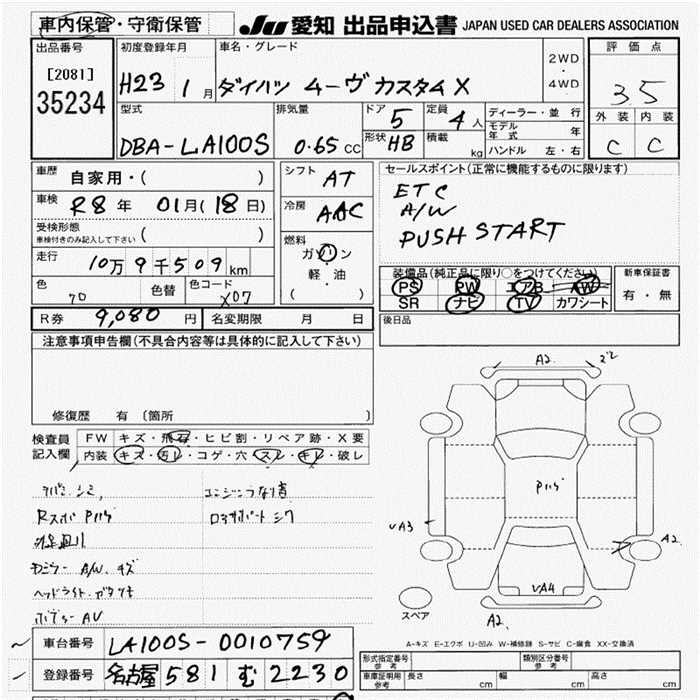 車内保管・守衛保管
JU 愛知 出品申込書 JAPAN USED CAR DEALERS ASSOCIATION
出品番号
[2081]
35234
初度登録年月
H23 1月
車名・グレード
ダイハツ ムーヴ カスタム X
2WD
・
4WD
評価点
3.5
外装 内装
C C
型式
DBA-LA100S
排気量
0.65 CC
ドア 5
形状 HB
定員 4人
積載 kg
ディーラー・並行
モデル年式 年
ハンドル 左・右
車歴
自家用・( )
車検 R8年 01月(18日)
受検形態
車検付きのみ記入して下さい ( )
走行 10万9千509km
色 色替 色コード
X07
シフト AT
冷房 AAC
燃料
ガソリン
・
軽・油
( )
セールスポイント(正常に機能するものに限ります)
ETC
A/W
PUSH START
装備品(純正品に限り○をつけてください)
PS PW エアB AW
SR ナビ TV カワシート
新車保証書
有・無
後日品
R券 9,080円 名変期限 月 日
注意事項申告欄(不具合内容等は具体的に記入して下さい)
修復歴 有 〔箇所
検査員
記入欄
FW キズ・飛石・ヒビ割・リペア跡・X要
内装 キズ・汚レ・コゲ・穴・スレ・キレ・破レ
A/W キズ
A2
P
VA3
A2
VA4
A2
スペア
A-キズ E-エクボ U-凹み W-補修跡 S-サビ C-腐食 XX-交換済
車台番号 LA100S-0010759
登録番号 名古屋 581 む 2230
形式指定番号
参考
類別区分番号
参考
車庫証明用
参考
長さ cm 幅 cm 高さ cm